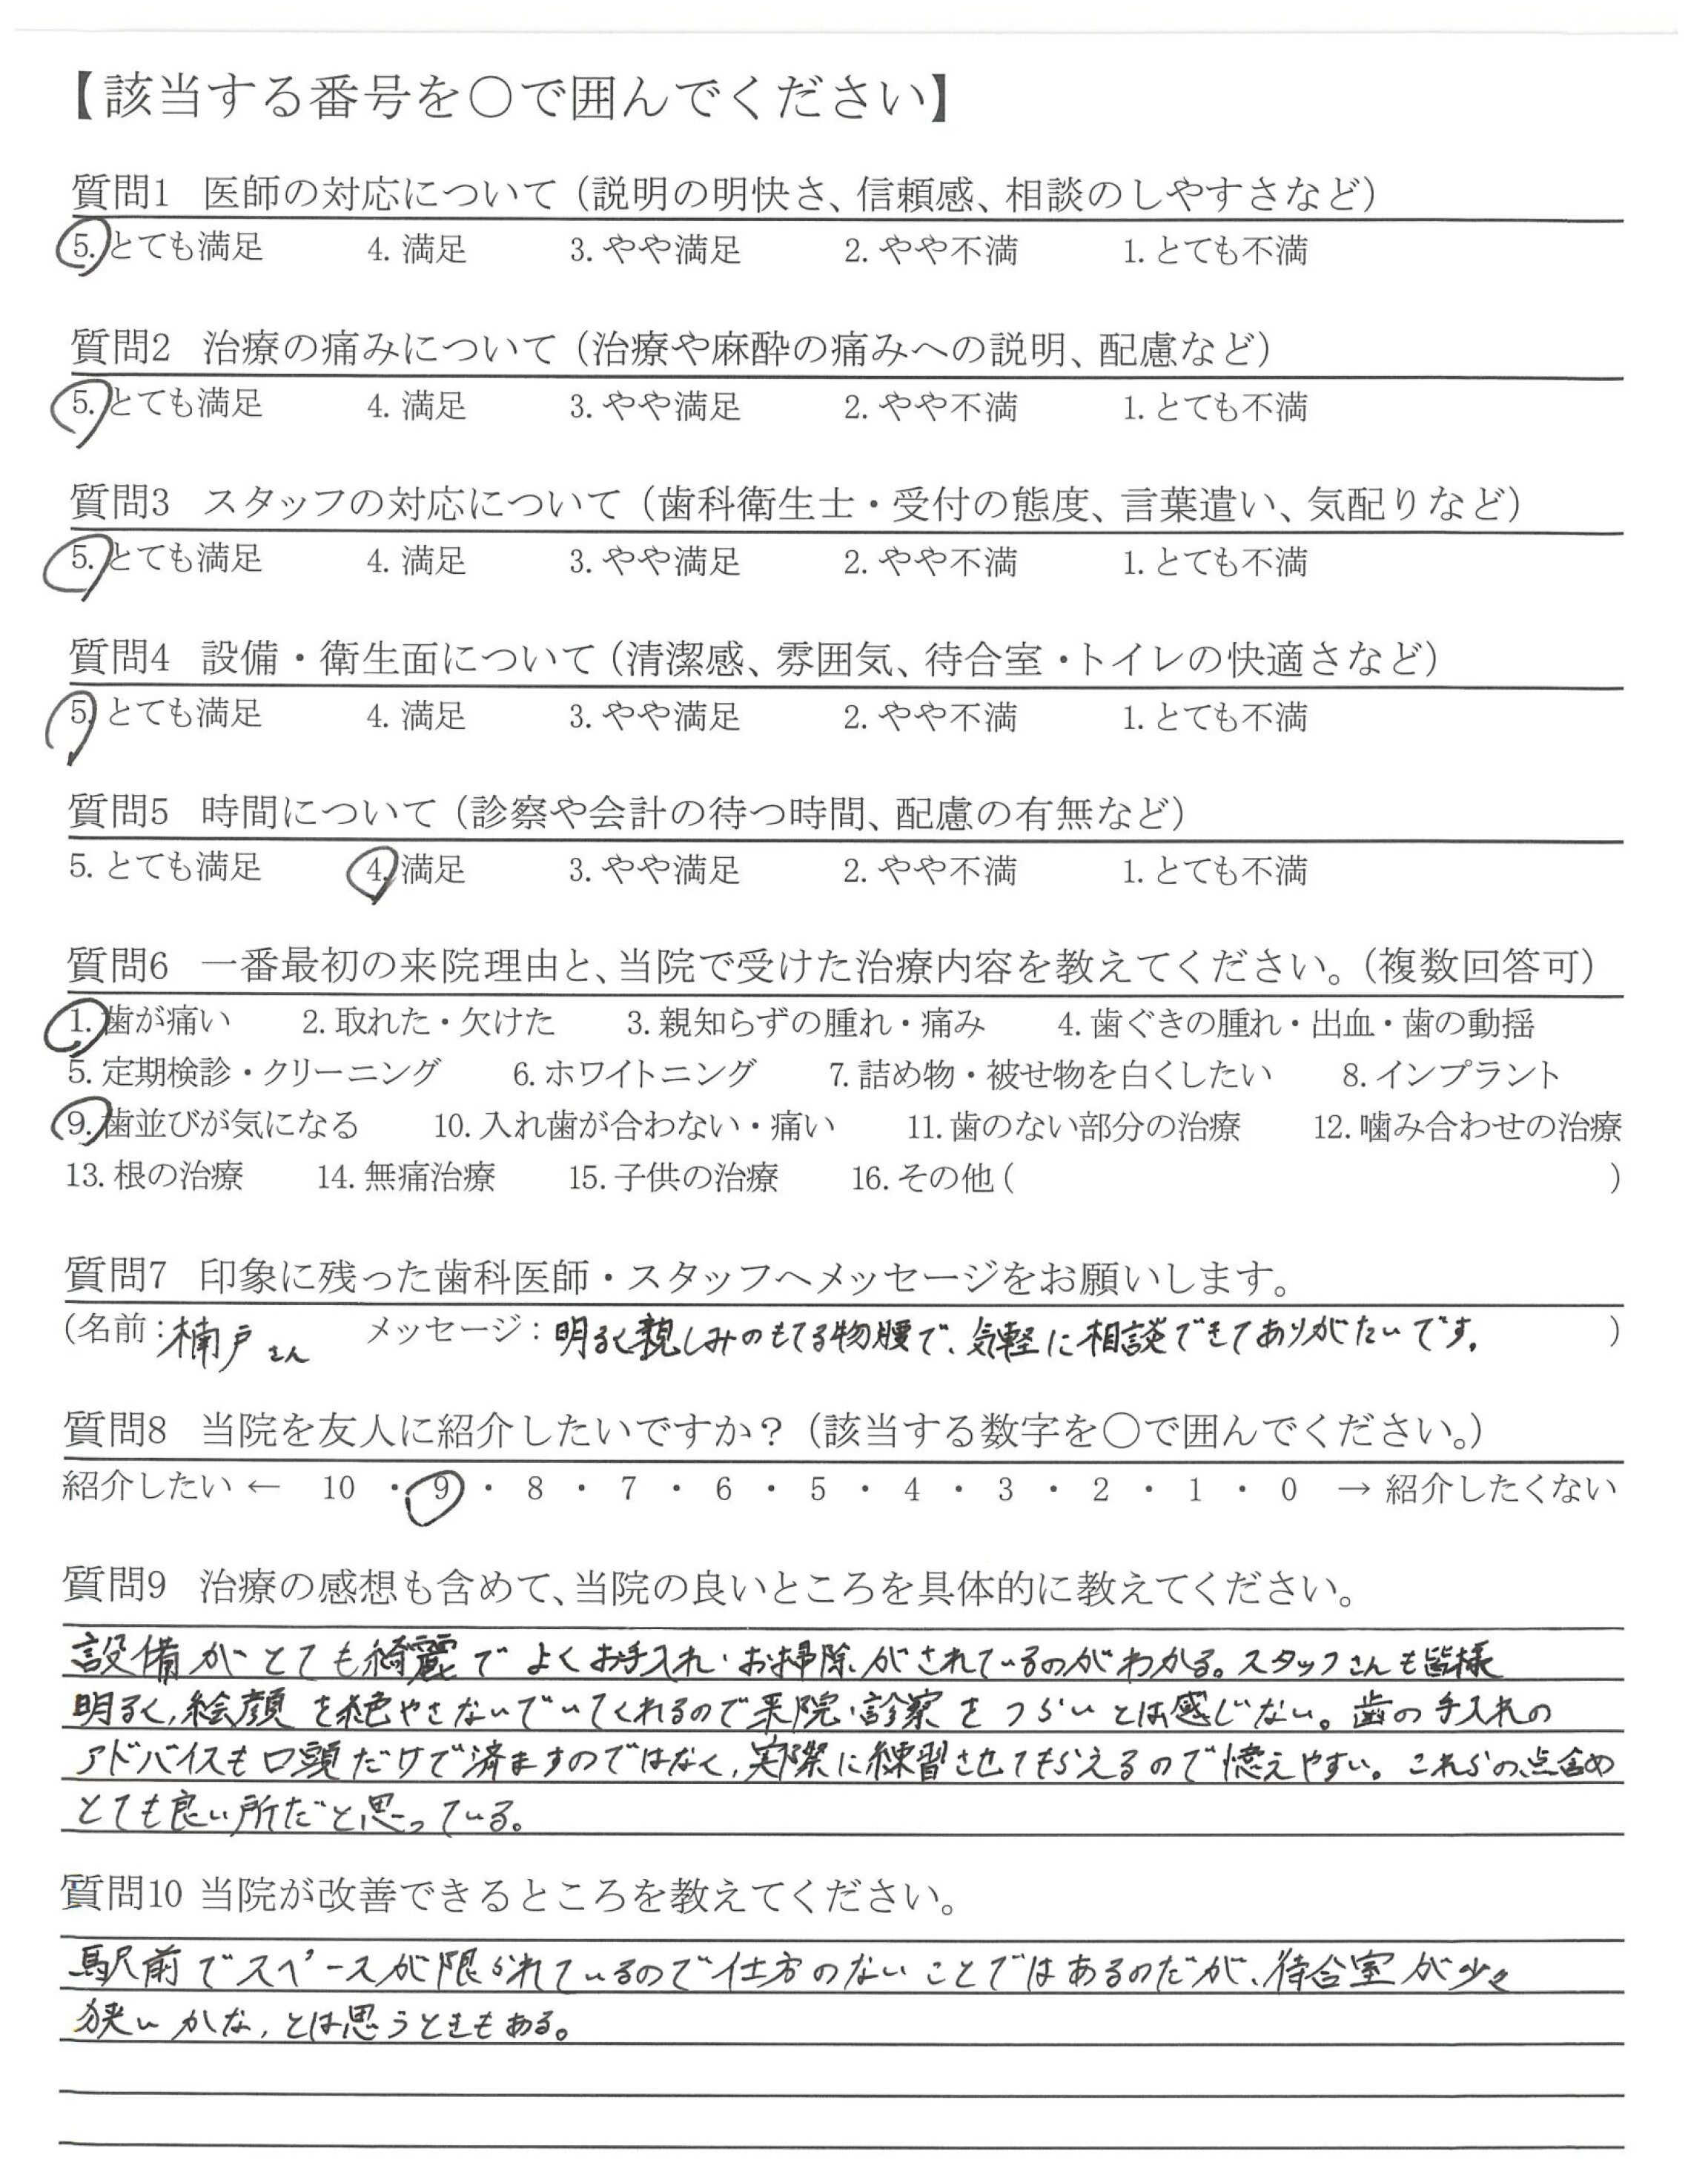 【該当する番号を○で囲んでください】
質問1 医師の対応について（説明の明快さ、信頼感、相談のしやすさなど）
5. とても満足 4. 満足 3. やや満足 2. やや不満 1. とても不満
質問2 治療の痛みについて（治療や麻酔の痛みへの説明、配慮など）
5. とても満足 4. 満足 3. やや満足 2. やや不満 1. とても不満
質問3 スタッフの対応について（歯科衛生士・受付の態度、言葉遣い、気配りなど）
5. とても満足 4. 満足 3. やや満足 2. やや不満 1. とても不満
質問4 設備・衛生面について（清潔感、雰囲気、待合室・トイレの快適さなど）
5. とても満足 4. 満足 3. やや満足 2. やや不満 1. とても不満
質問5 時間について（診察や会計の待つ時間、配慮の有無など）
5. とても満足 4. 満足 3. やや満足 2. やや不満 1. とても不満
質問6 一番最初の来院理由と、当院で受けた治療内容を教えてください。（複数回答可）
1. 歯が痛い 2. 取れた・欠けた 3. 親知らずの腫れ・痛み 4. 歯ぐきの腫れ・出血・歯の動揺
5. 定期検診・クリーニング 6. ホワイトニング 7. 詰め物・被せ物を白くしたい 8. インプラント
9. 歯並びが気になる 10. 入れ歯が合わない・痛い 11. 歯のない部分の治療 12. 噛み合わせの治療
13. 根の治療 14. 無痛治療 15. 子供の治療 16. その他（ ）
質問7 印象に残った歯科医師・スタッフへメッセージをお願いします。
（名前：楠戸さん メッセージ：明るく親しみのもてる物腰で、気軽に相談できてありがたいです。 ）
質問8 当院を友人に紹介したいですか？（該当する数字を○で囲んでください。）
紹介したい ← 10 ・ 9 ・ 8 ・ 7 ・ 6 ・ 5 ・ 4 ・ 3 ・ 2 ・ 1 ・ 0 → 紹介したくない
質問9 治療の感想も含めて、当院の良いところを具体的に教えてください。
設備がとても綺麗でよくお手入れ・お掃除がされているのがわかる。スタッフさんも皆様
明るく、絵顔を絶やさないでいてくれるので来院・診察をつらいとは感じない。歯の手入れの
アドバイスも口頭だけで済ますのではなく、実際に練習させてもらえるので憶えやすい。これらの点含め
とても良い所だと思っている。
質問10 当院が改善できるところを教えてください。
駅前でスペースが限られているので仕方のないことではあるのだが、待合室が少々
狭いかな、とは思うときもある。